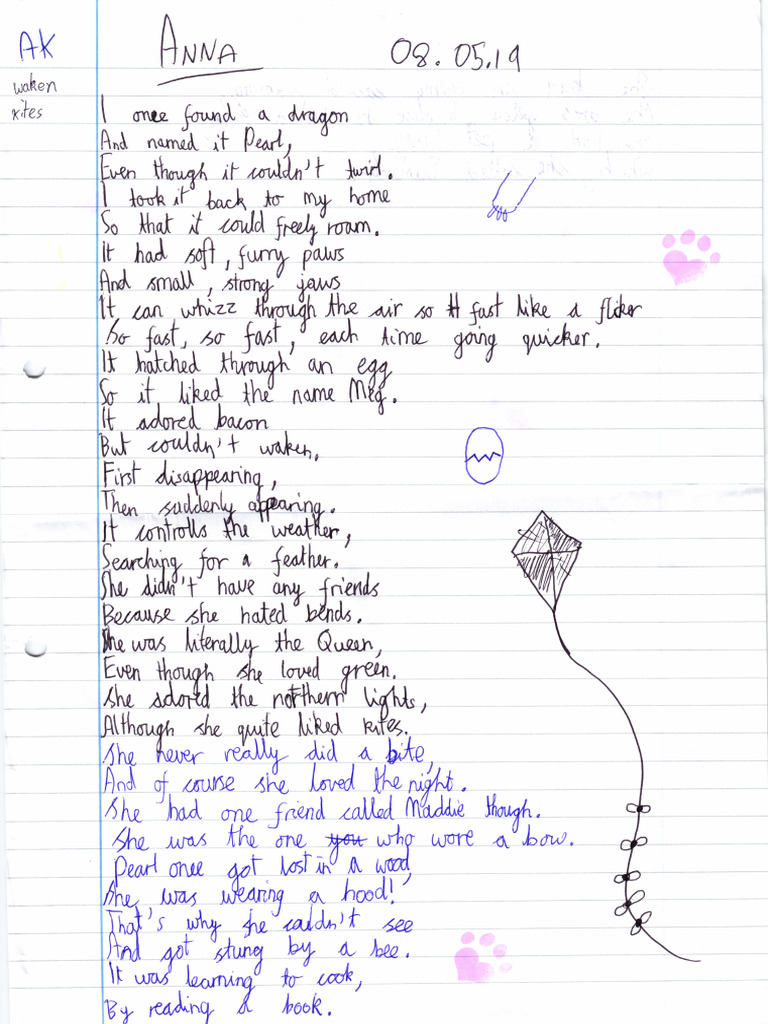 AK
ANNA
08.05.19
waken
kites
I once found a dragon
And named it Pearl,
Even though it couldn't twirl.
I took it back to my home
So that it could freely roam.
It had soft, furry paws
And small, strong jaws
It can whizz through the air so fast like a fliker
So fast, so fast, each time going quicker.
It hatched through an egg
So it liked the name Meg.
It adored bacon
But couldn't waken.
First disappearing,
Then suddenly appearing.
It controlls the weather,
Searching for a feather.
She didn't have any friends
Because she hated bends.
She was literally the Queen,
Even though she loved green.
She adored the northern lights,
Although she quite liked kites.
She never really did a bite,
And of course she loved the night.
She had one friend called Maddie though.
She was the one you who wore a bow.
Pearl once got lost in a wood,
She was wearing a hood!
That's why she couldn't see
And got stung by a bee.
It was learning to cook,
By reading a book.